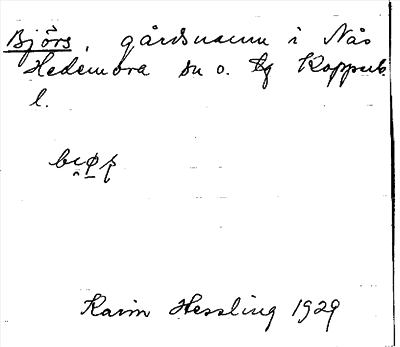 Björs, gårdsnamn i Nås
Hedemora sn o. tg Kopparb.
l.
Karin Hessling 1929